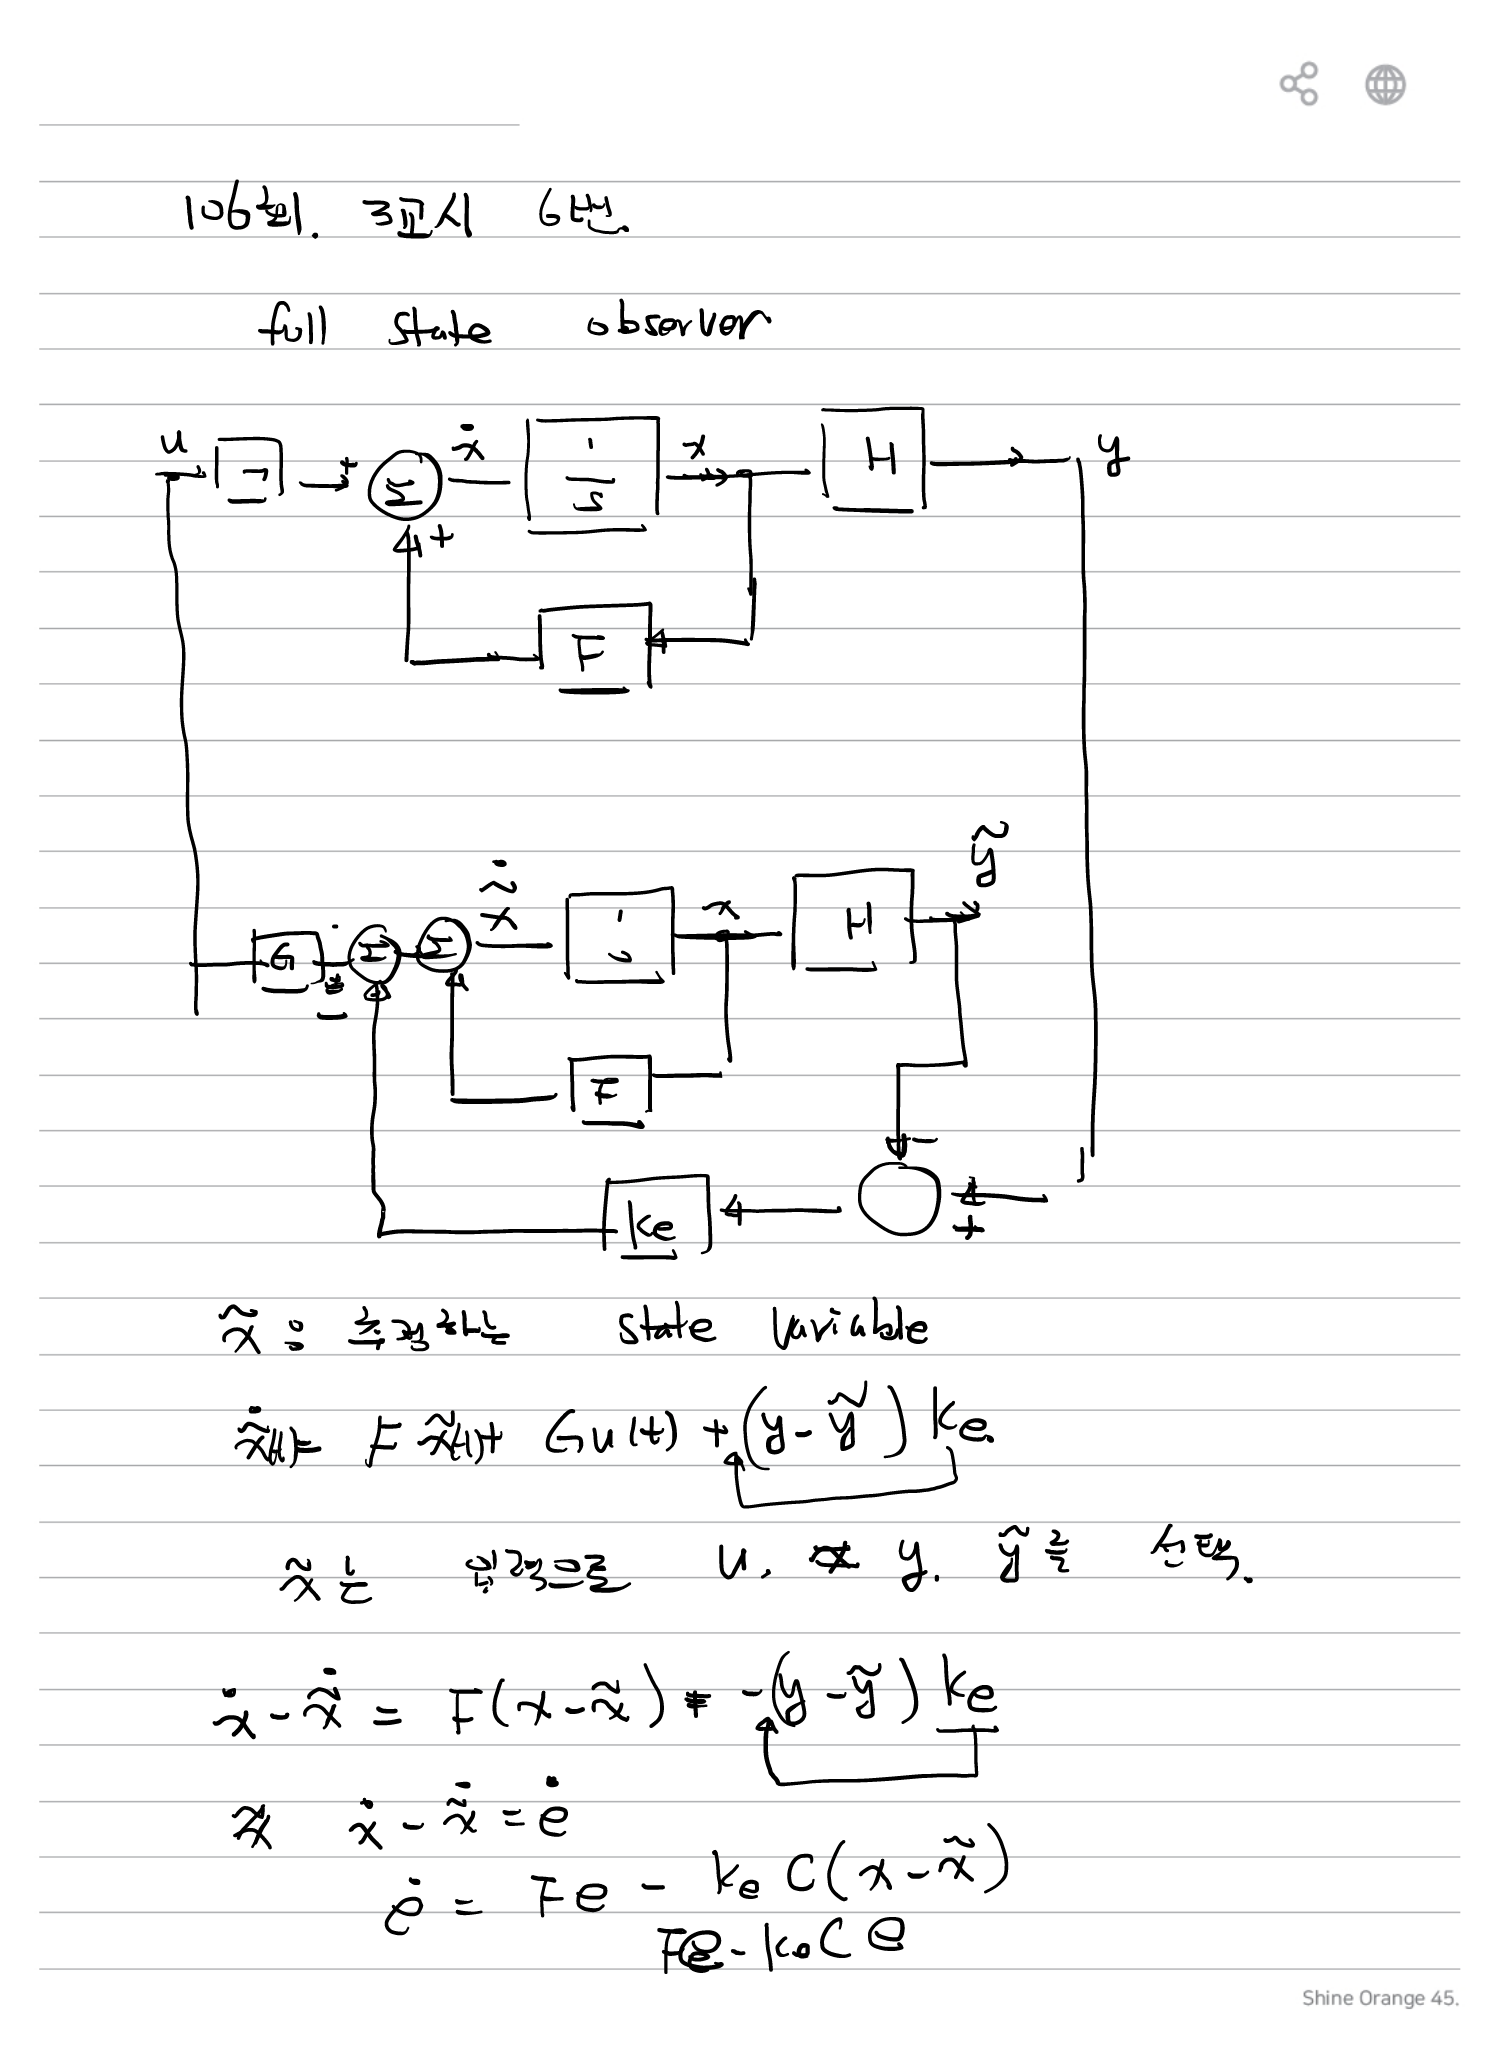 106회. 3교시 6번.
full state observer
u ㄱ + Σ ẋ 1/s x H y
+
F
ỹ
G Σ Σ x̃̇ x H
F
−
ke +
x̃ : 추정하는 state variable
x̃̇(t) = F x̃(t) + Gu(t) + (y - ỹ) ke.
x̃ 는 입력으로 u. y. ỹ를 선택.
ẋ - x̃̇ = F(x - x̃) -(y - ỹ) ke
ẋ - x̃̇ = ė
ė = Fe - ke C(x - x̃)
Fe - ke C e
Shine Orange 45.